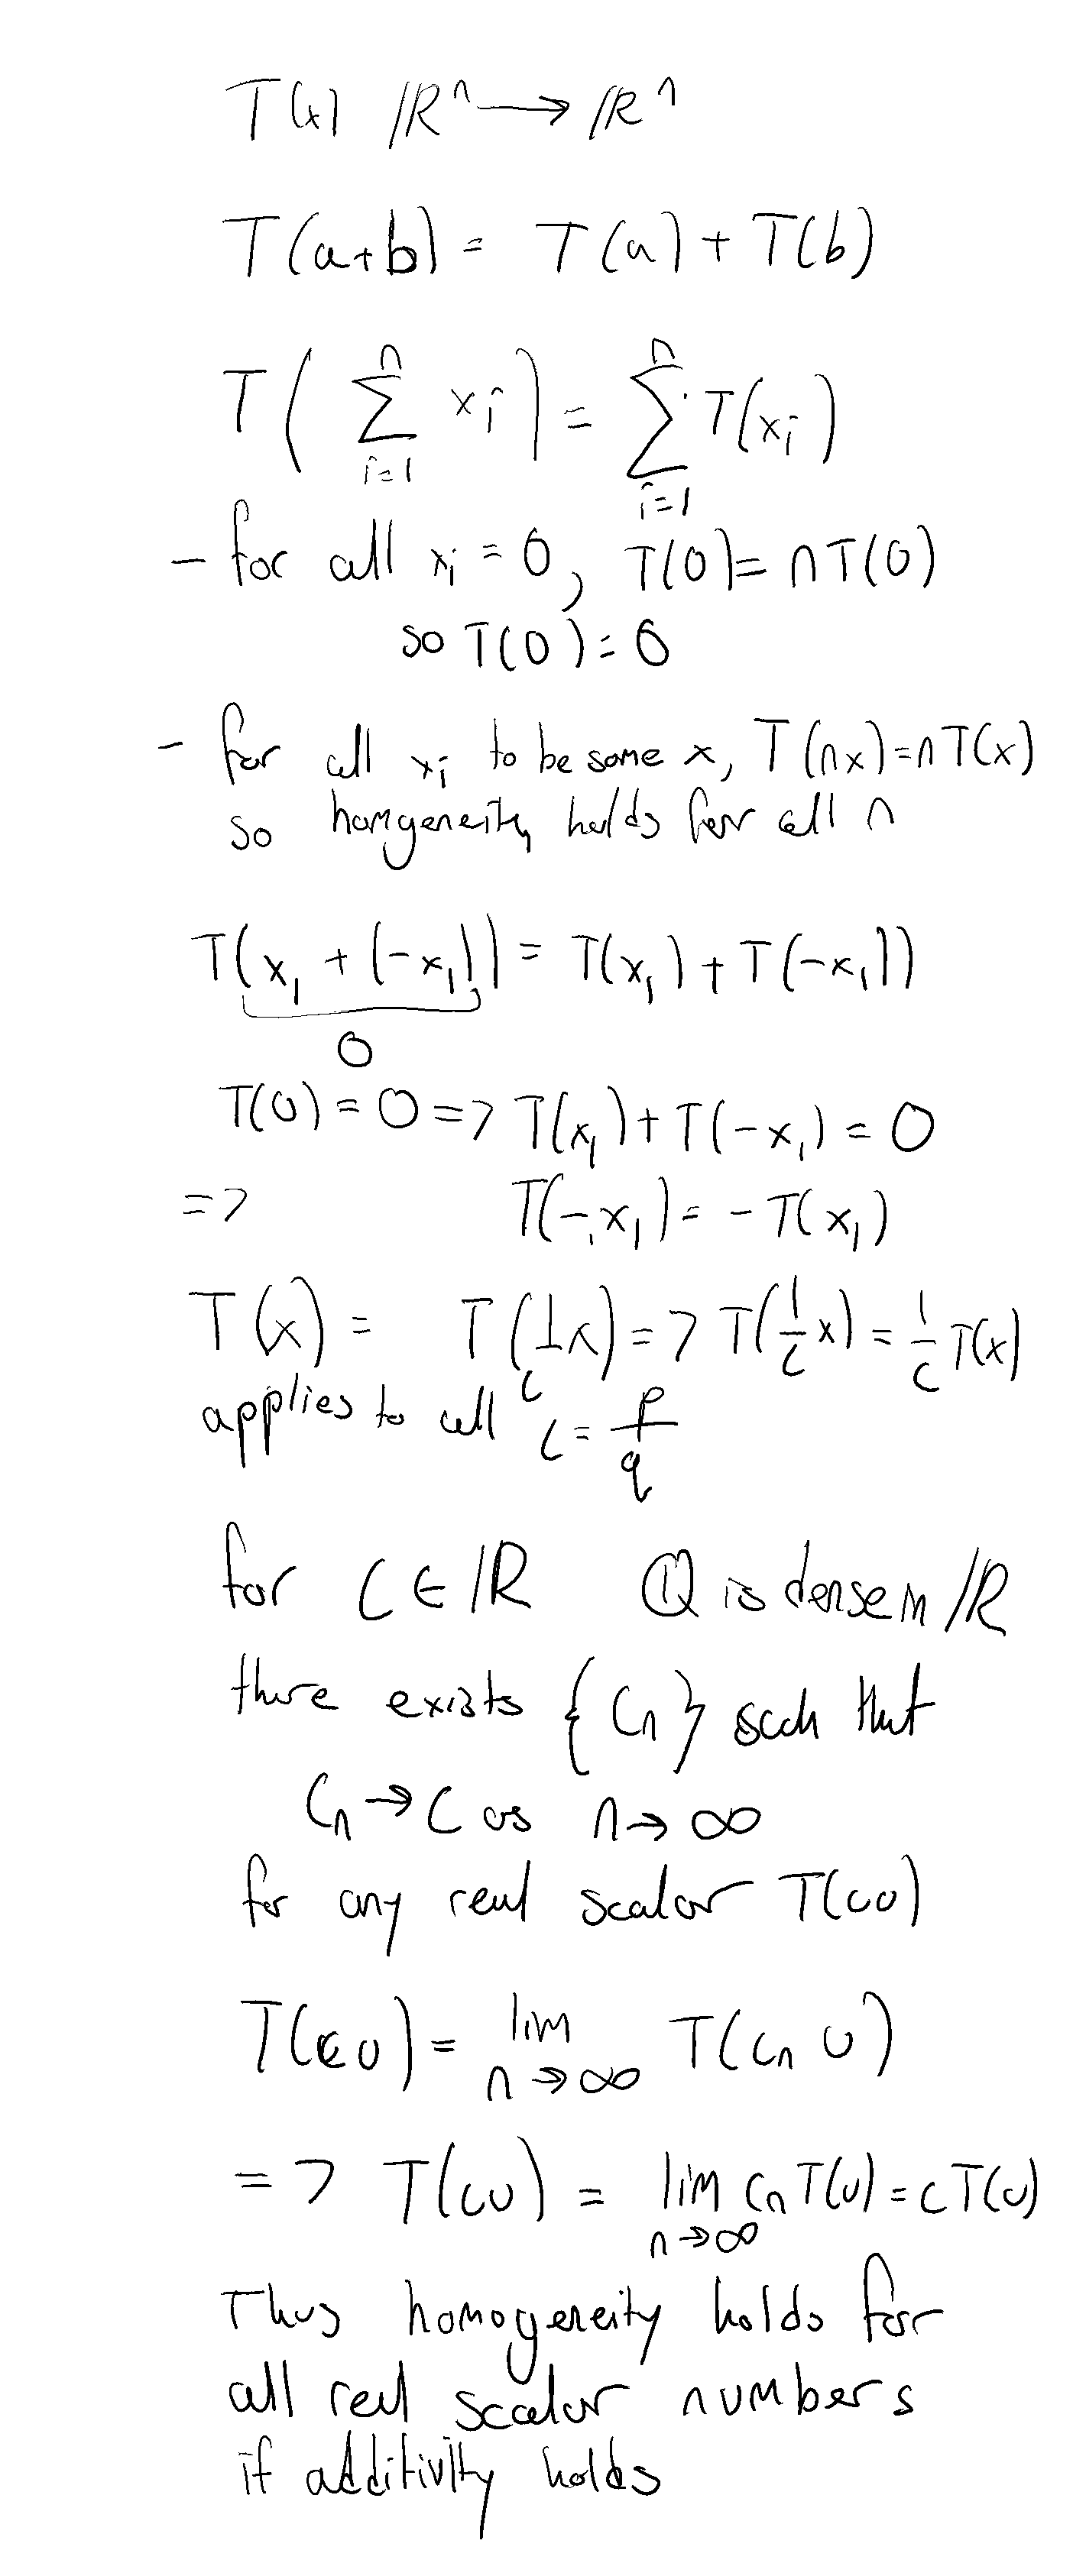 T(x) ℝ^n → ℝ^n
T(a+b) = T(a) + T(b)
T(∑_{i=1}^{n} x_i) = ∑_{i=1}^{n} T(x_i)
- for all x_i = 0, T(0) = nT(0)
so T(0) = 0
- for all x_i to be some x, T(nx) = nT(x)
so homgeneity holds for all n
T(x_1 + (-x_1)) = T(x_1) + T(-x_1))
0
T(0) = 0 => T(x_1) + T(-x_1) = 0
=> T(-x_1) = -T(x_1)
T(x) = T(1/c x) => T(1/c x) = 1/c T(x)
applies to all c = p/q
for c ∈ ℝ ℚ is dense in ℝ
there exists {c_n} such that
c_n → c as n → ∞
for any real scalar T(cu)
T(cu) = lim_{n→∞} T(c_n u)
=> T(cu) = lim_{n→∞} c_n T(u) = cT(u)
Thus homogeneity holds for
all real scalar numbers
if additivity holds